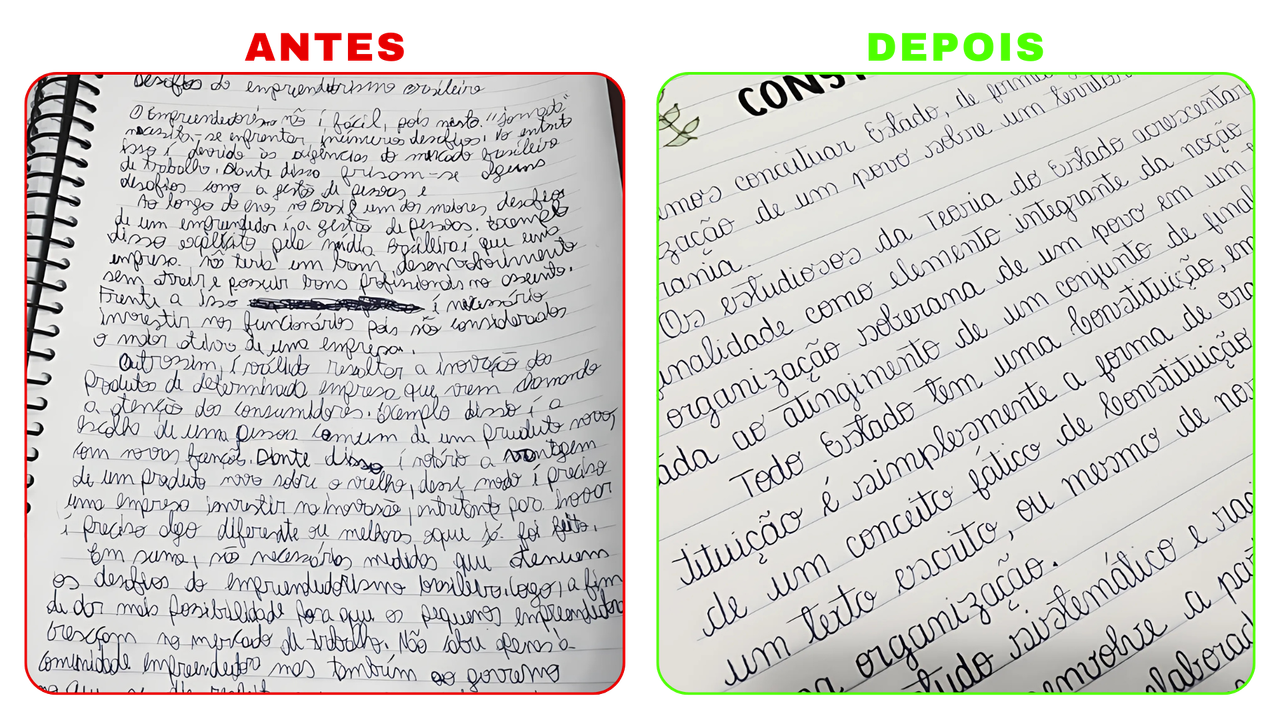 ANTES
Desafios do empreendedorismo brasileiro
O Empreendedorismo não é fácil, pois nesta "jornada"
necessita-se enfrentar inúmeros desafios. No entanto
isso é devido às exigências do mercado brasileiro
de trabalho. Diante disso frisam-se alguns
desafios como a gestão de pessoas e
Ao longo do anos no Brasil um dos maiores desafios
de um emprendedor é a gestão de pessoas. Exemplo
disso explícito pela mídia brasileira é que uma
empresa não teria um bom desenvolvimento
sem atrair e possuir bons profissionais no assunto.
Frente a isso é necessário
investir nos funcionários pois são considerados
o maior ativo de uma empresa.
Outrossim, é válido ressaltar a inovação dos
produtos de determinada empresa que vem chamando
a atenção dos consumidores. Exemplo disso é a
escolha de uma pessoa comum de um produto novo,
com novas funções. Diante disso, é notório a vantagem
de um produto novo sobre o velho, desse modo é preciso
uma empresa investir na inovação, entretanto para inovar
é preciso algo diferente ou melhora aque já foi feito.
Em suma, são necessárias medidas que atenuem
os desafios do empreendedorismo brasileiro. Logo, a fim
de dar mais possibilidade para que os pequenos empreendedores
cresçam no mercado de trabalho. Não cabe apenas à
comunidade empreendedora mas também ao governo
DEPOIS
CONST
mos conceituar Estado, de forma
zação de um povo sobre um territó
rania.
Os estudiosos da Teoria do Estado acrescentar
nalidade como elemento integrante da noção
organização soberana de um povo em um
ada ao atingimento de um conjunto de final
Todo Estado tem uma Constituição, em
tituição é simplesmente a forma de org
de um conceito fático de Constituição
um texto escrito, ou mesmo de nor
organização.
tudo sistemático e rac
envolve a pa
elaborad